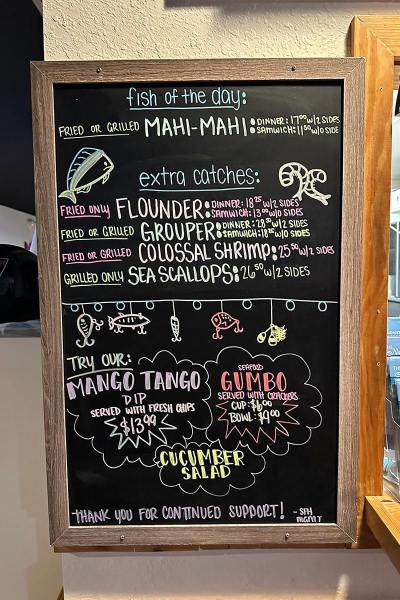 fish of the day:
FRIED OR GRILLED MAHI-MAHI: DINNER: 17⁰⁰ W/2 SIDES
SAMWICH: 11⁵⁰ W/O SIDE
extra catches:
FRIED ONLY FLOUNDER: DINNER: 18²⁵ W/2 SIDES
SAMWICH: 13⁰⁰ W/O SIDES
FRIED OR GRILLED GROUPER: DINNER: 28⁵⁰ W/2 SIDES
SAMWICH: 18²⁵ W/O SIDES
FRIED OR GRILLED COLOSSAL SHRIMP: 25⁵⁰ W/2 SIDES
GRILLED ONLY SEA SCALLOPS: 26⁵⁰ W/2 SIDES
TRY OUR:
MANGO TANGO
DIP
SERVED WITH FRESH CHIPS
$13.99
SEAFOOD
GUMBO
SERVED WITH CRACKERS
CUP: $6⁰⁰
BOWL: $9⁰⁰
CUCUMBER
SALAD
THANK YOU FOR CONTINUED SUPPORT! - SFH
MGMT